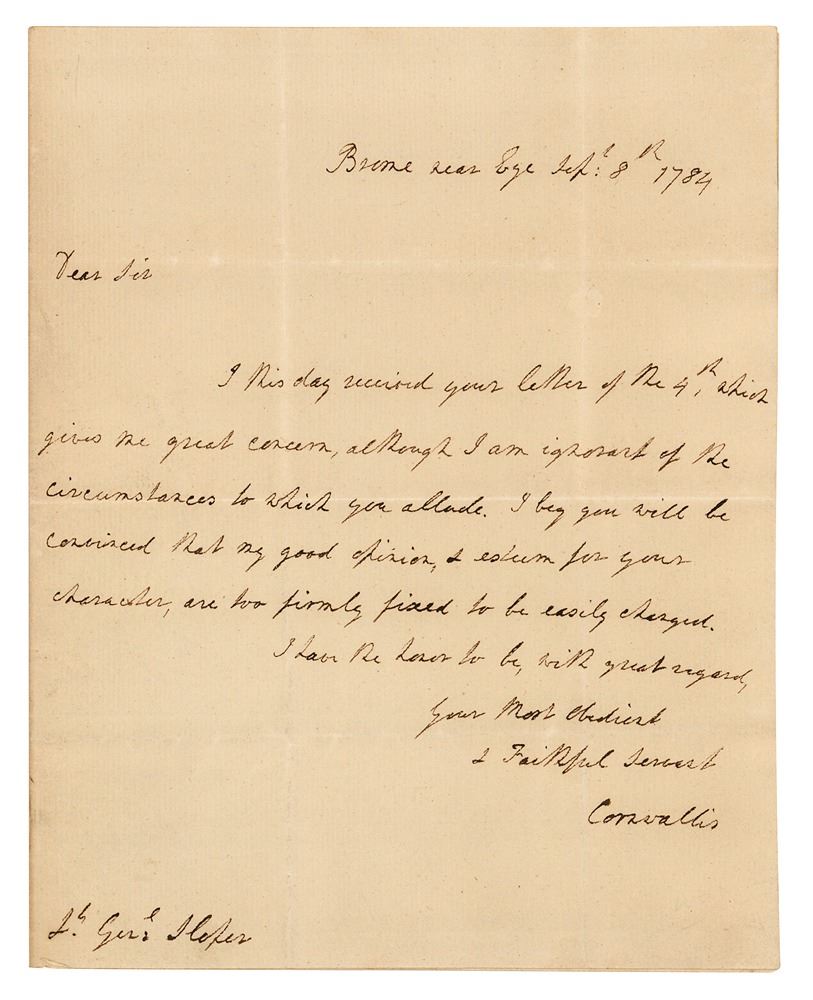 Brome near Eye Sept: 8th 1784
Dear Sir
I this day received your letter of the 4th, which
gives me great concern, although I am ignorant of the
circumstances to which you allude. I beg you will be
convinced that my good opinion, & esteem for your
character, are too firmly fixed to be easily changed.
I have the honor to be, with great regard,
Your Most Obedient
& Faithful Servant
Cornwallis
Lt. Genl: Sloper